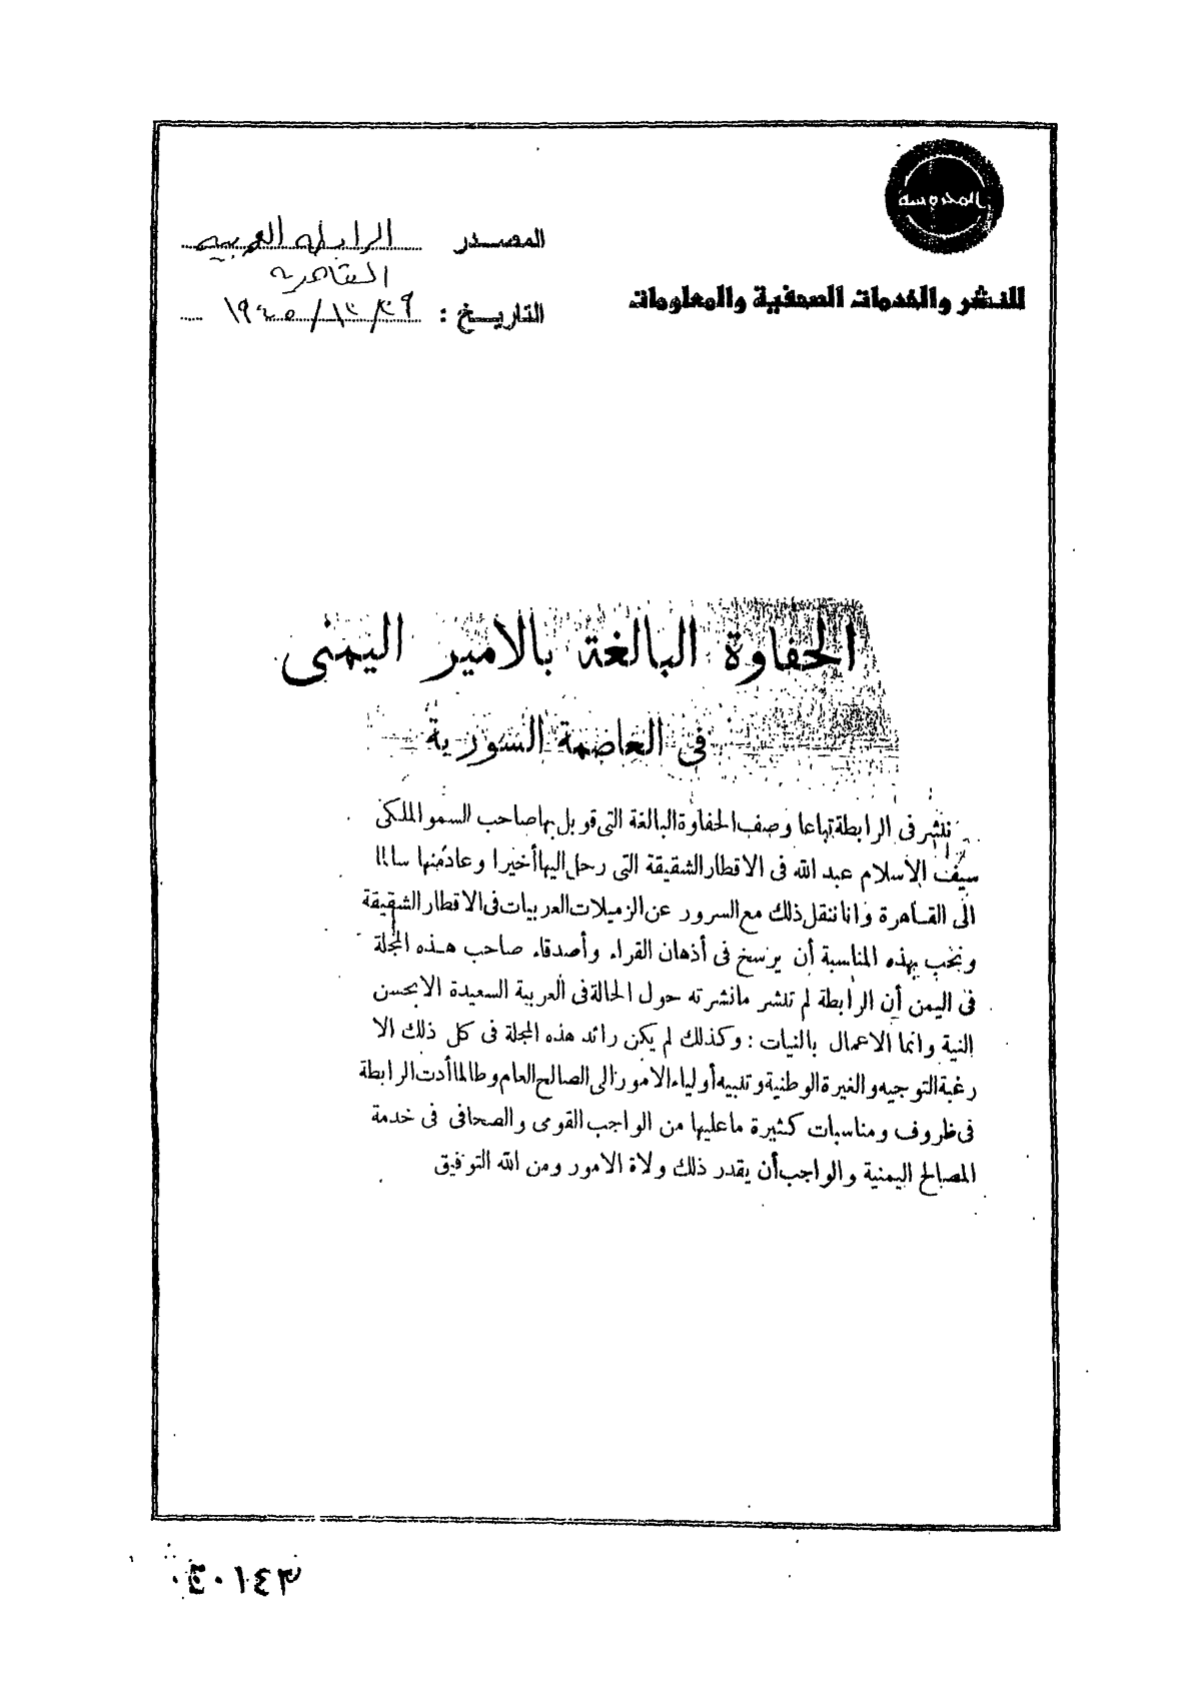 المحروسة
للنشر والخدمات الصحفية والمعلومات
المصدر الرابطه العربيه
القاهريه
التاريخ : ٢٩/١٢/١٩٤٥
الحفاوة البالغة بالامير اليمنى
فى العاصمة السورية
ننشر فى الرابطة تباعا وصف الحفاوة البالغة التى قوبل بها صاحب السمو الملكى
سيف الاسلام عبد الله فى الاقطار الشقيقة التى رحل اليها أخيرا وعاد منها سالما
الى القاهرة وانا ننقل ذلك مع السرور عن الزميلات العربيات فى الاقطار الشقيقة
ونحب بهذه المناسبة أن يرسخ فى أذهان القراء وأصدقاء صاحب هذه المجلة
فى اليمن أن الرابطة لم تنشر مانشرته حول الحالة فى العربية السعيدة الا بحسن
النية وانما الاعمال بالنيات : وكذلك لم يكن رائد هذه المجلة فى كل ذلك الا
رغبة التوجيه والغيرة الوطنية وتنبيه أولياء الامور الى الصالح العام وطالما أدت الرابطة
فى ظروف ومناسبات كثيرة ماعليها من الواجب القومى والصحافى فى خدمة
المصالح اليمنية والواجب أن يقدر ذلك ولاة الامور ومن الله التوفيق